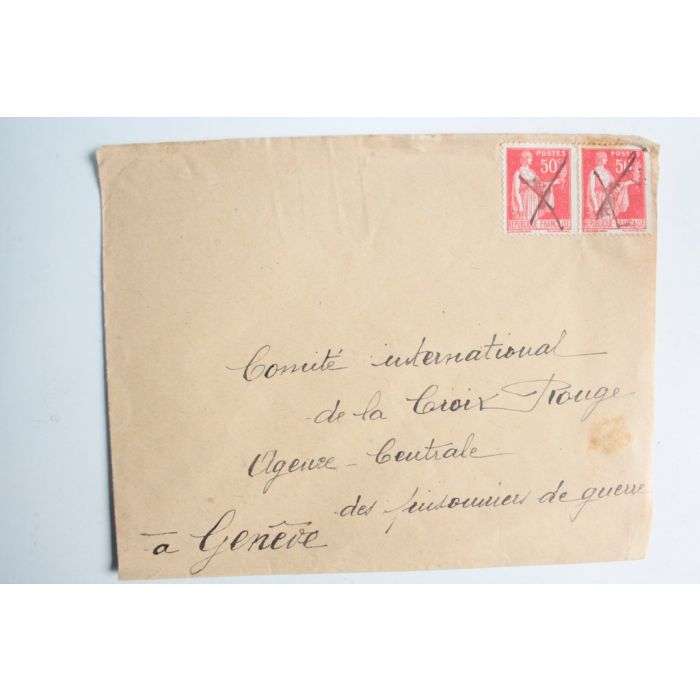 POSTES
50c
REPUBLIQUE FRANÇAISE
POSTES
50c
REPUBLIQUE FRANÇAISE
Comité international
de la Croix Rouge
Agence - Centrale
des prisonniers de guerre
à Genève